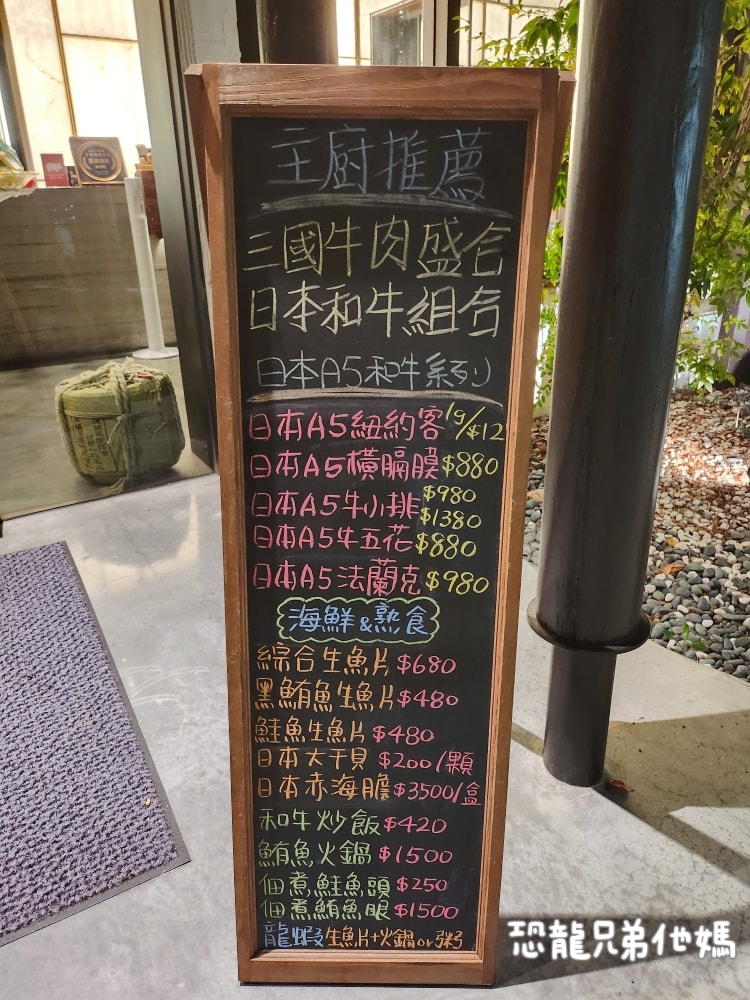 主廚推薦
三國牛肉盛合
日本和牛組合
日本A5和牛系列
日本A5紐約客1g/$12
日本A5橫膈膜$880
日本A5牛小排$980 $1380
日本A5牛五花$880
日本A5法蘭克$980
海鮮&熟食
綜合生魚片$680
黑鮪魚生魚片$480
鮭魚生魚片$480
日本大干貝$200/顆
日本赤海膽$3500/盒
和牛炒飯$420
鮪魚火鍋$1500
佃煮鮭魚頭$250
佃煮鮪魚眼$1500
龍蝦生魚片+火鍋or粥
恐龍兄弟他媽